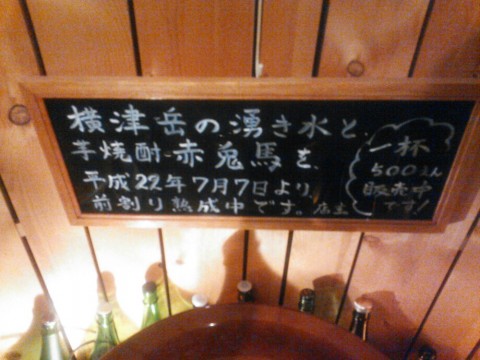 横津岳の湧き水と、
芋焼酎-赤兎馬を、
平成22年7月7日より
前割り熟成中です。店主
一杯
500えん
販売中
です!